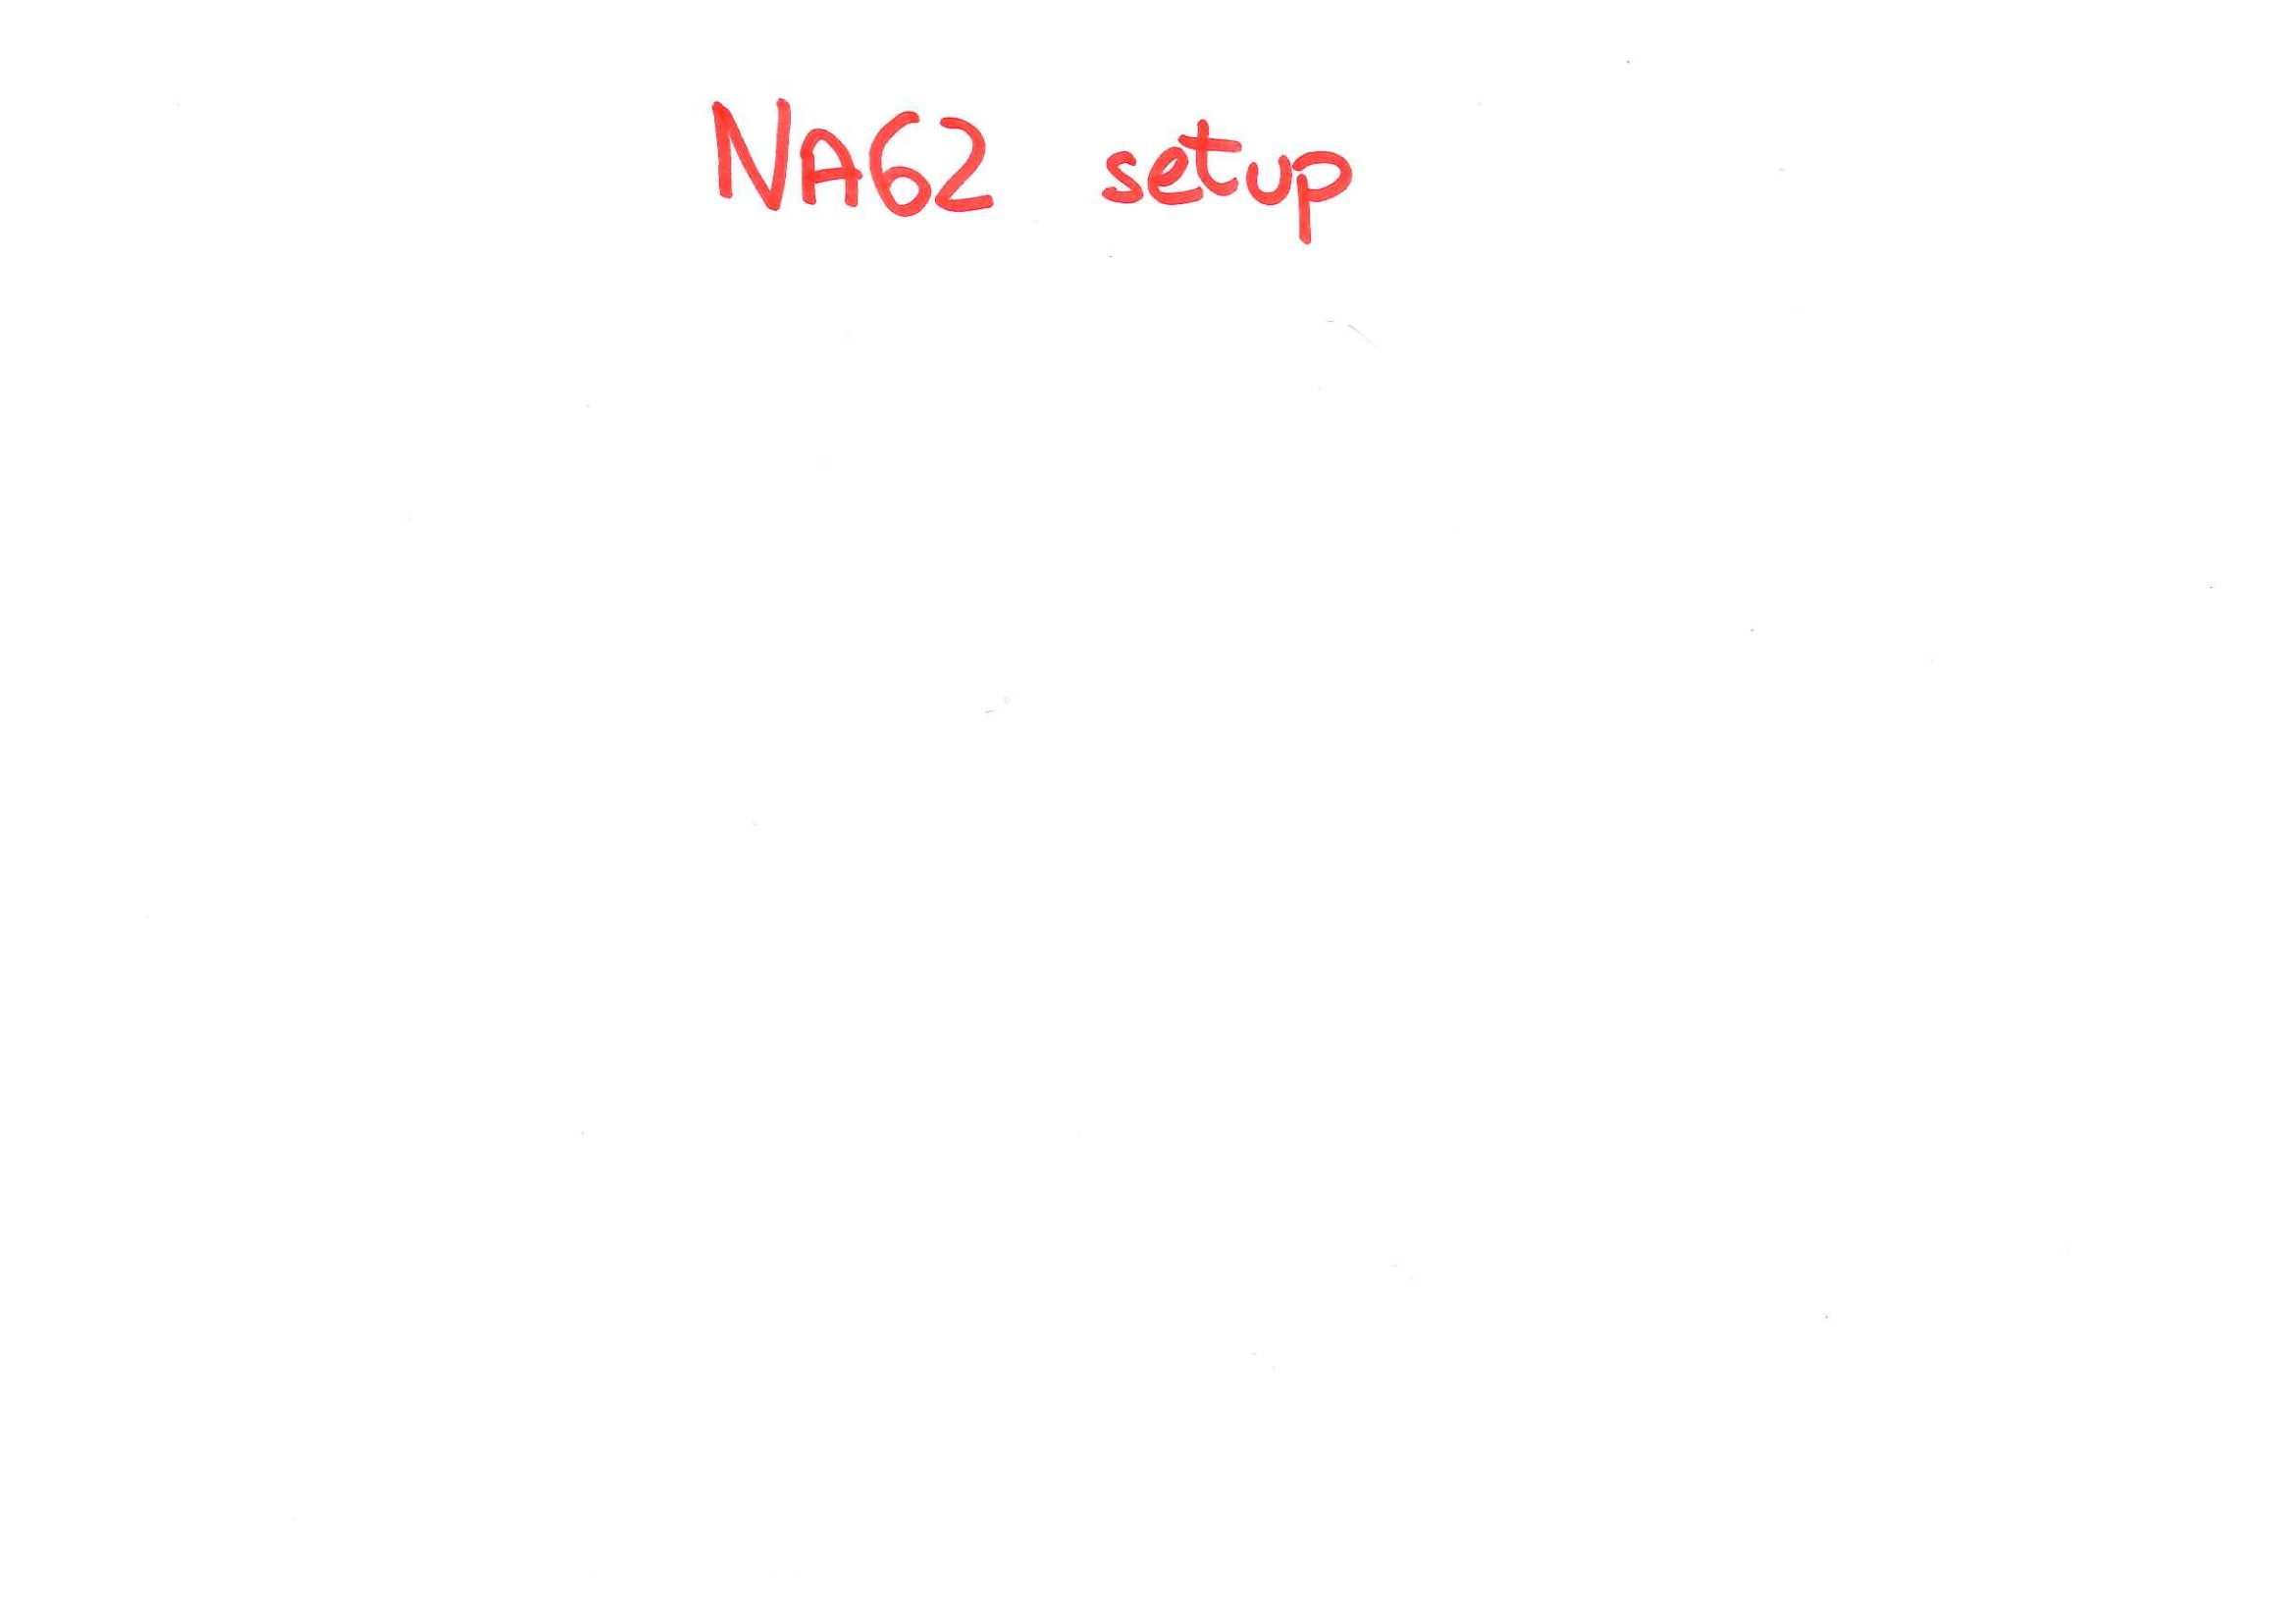 NA62 setup